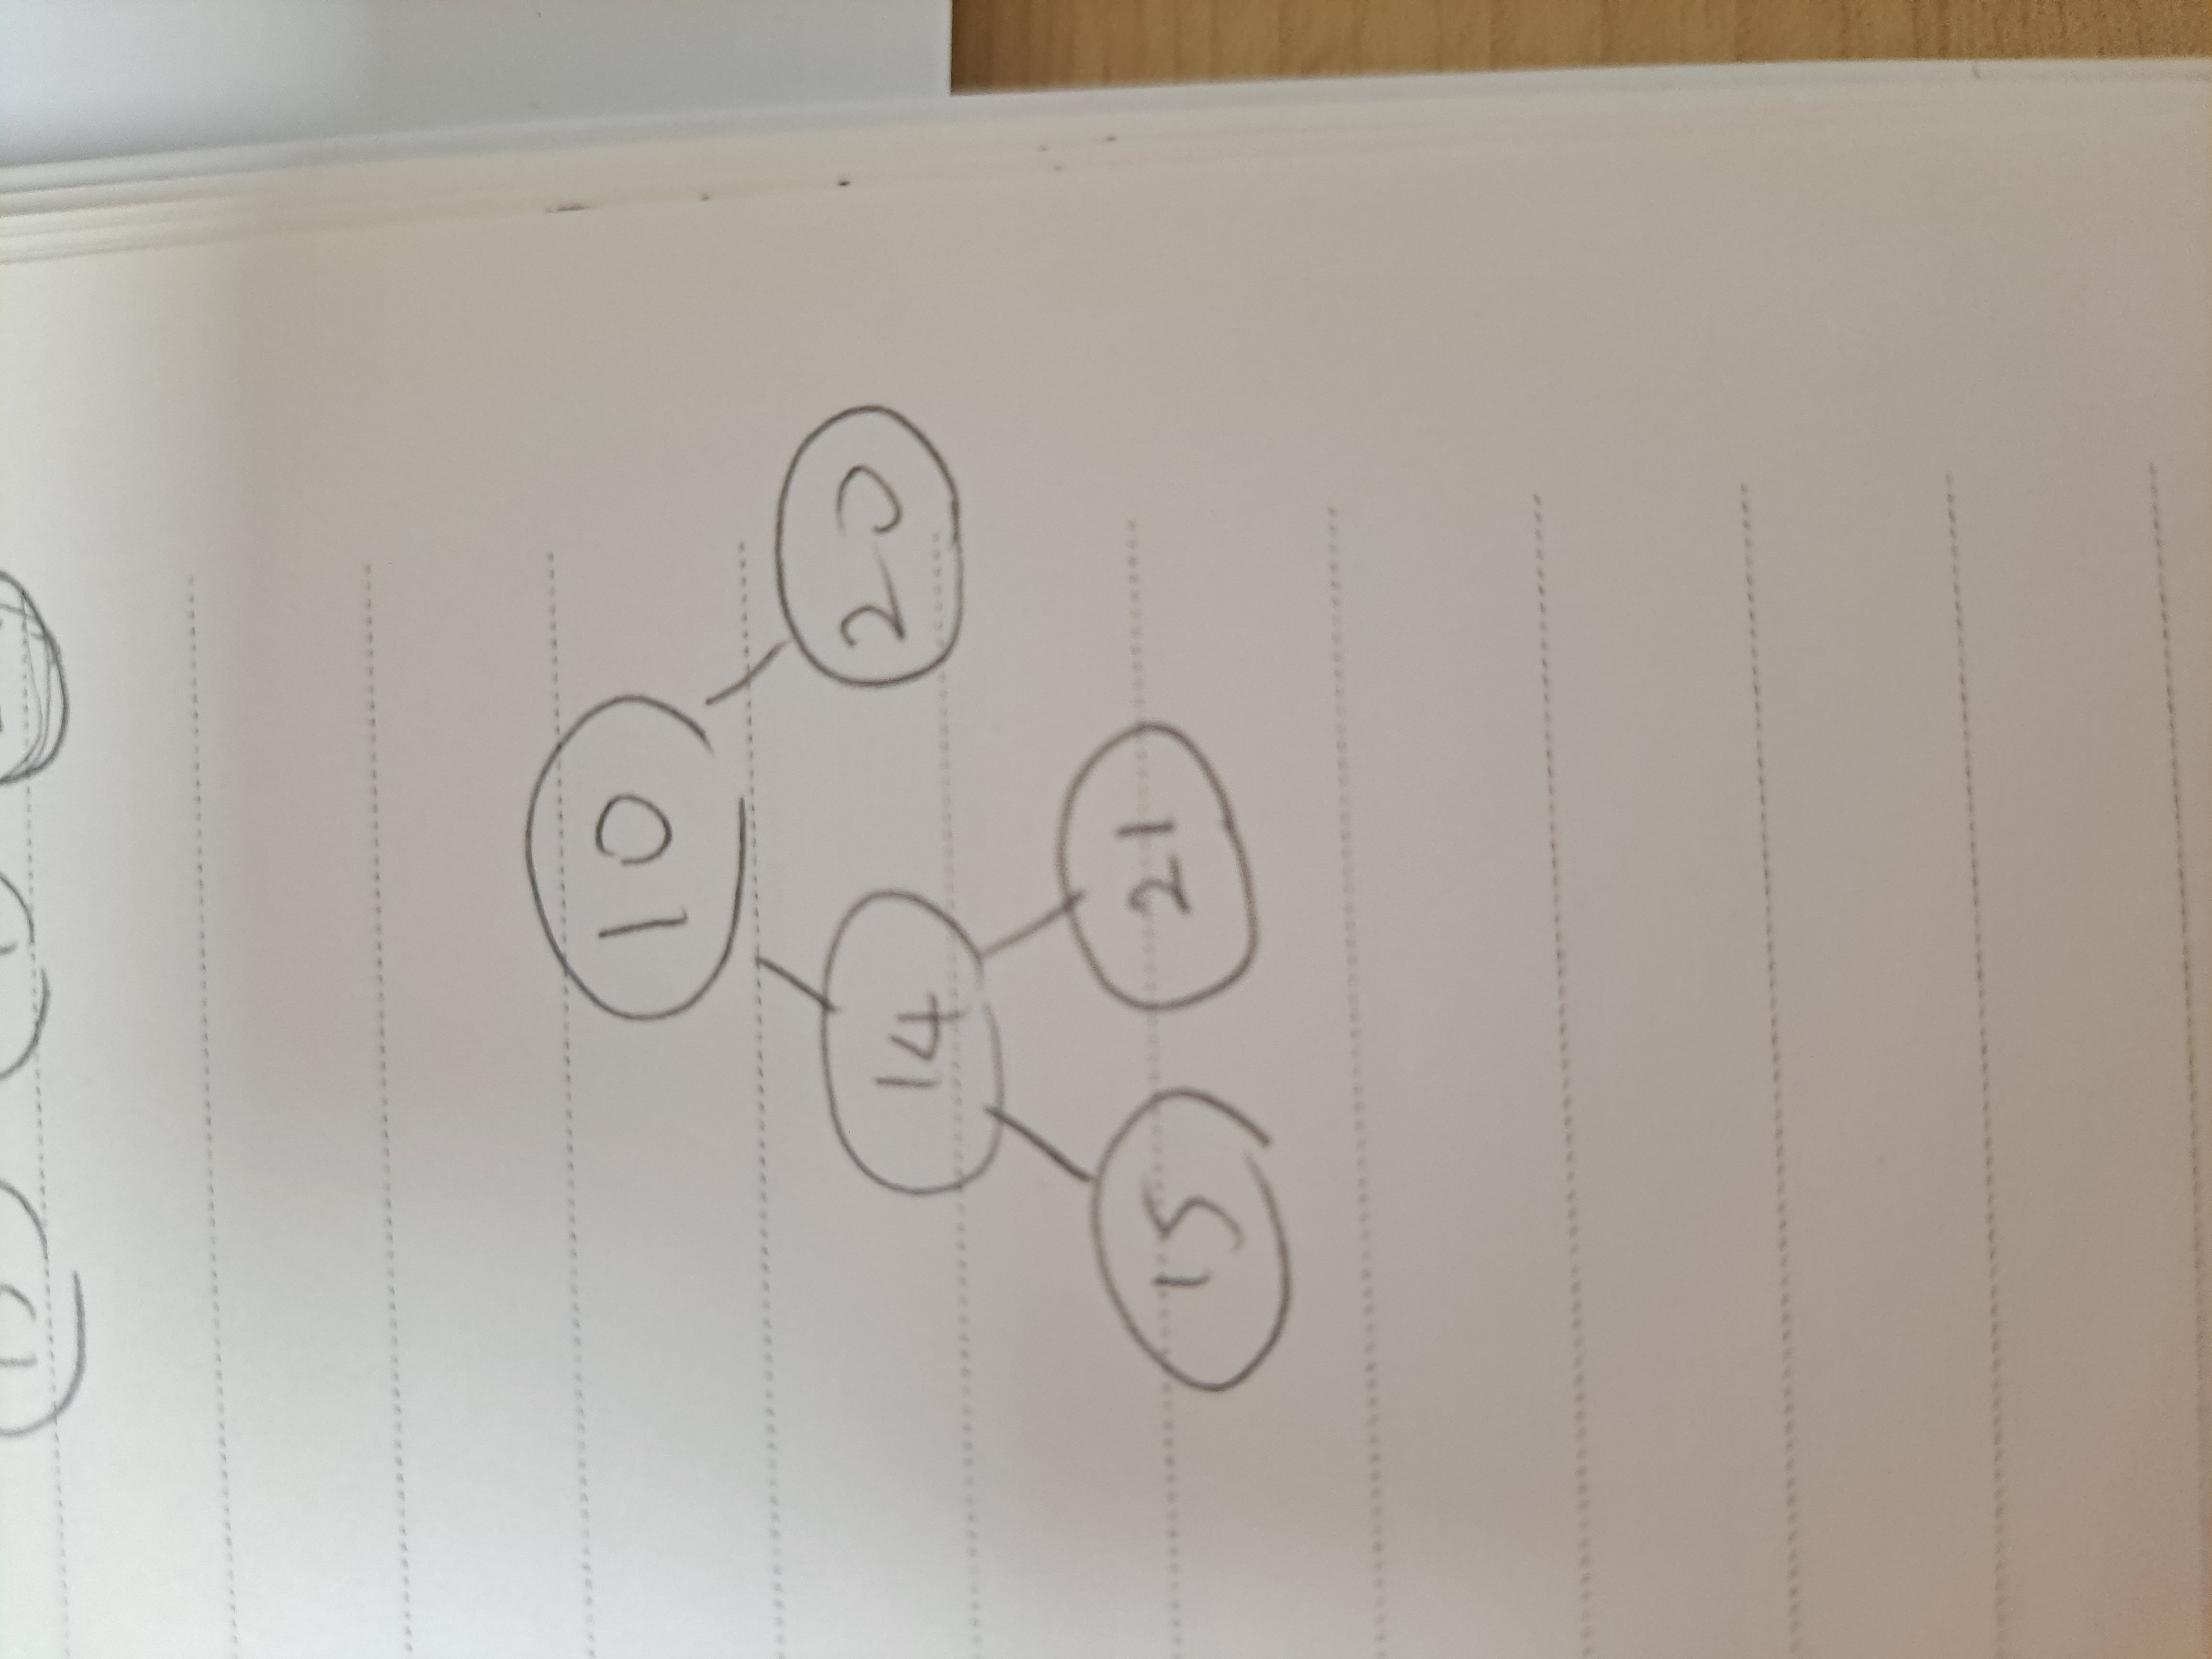 10
14 20
15 21